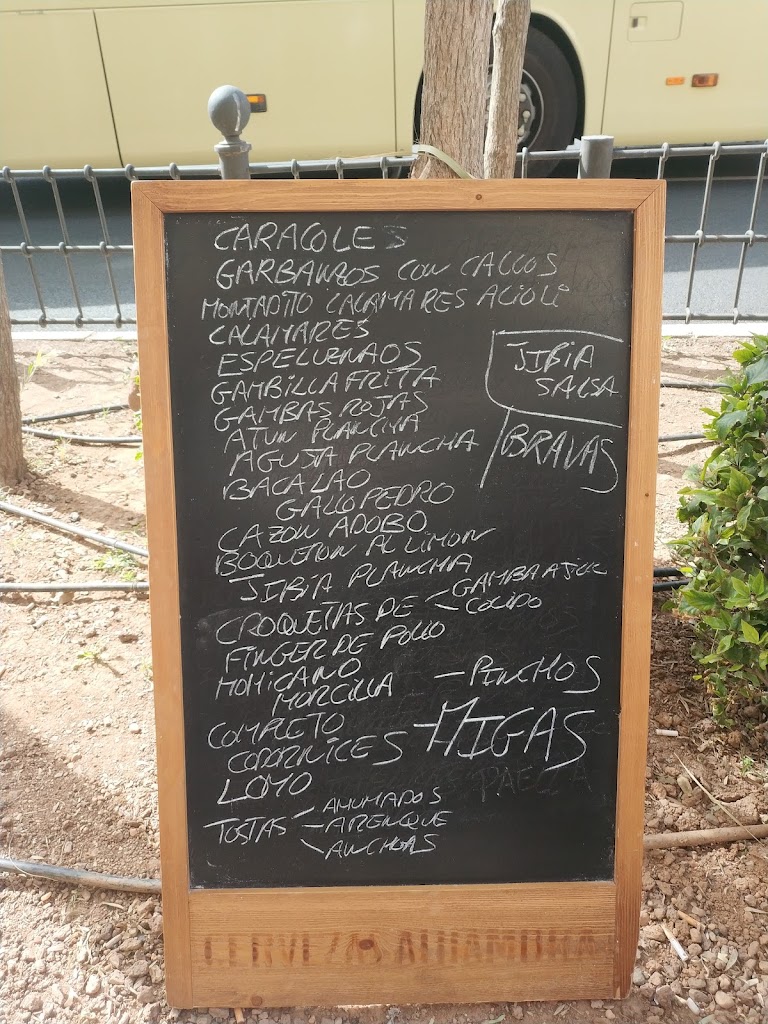 CARACOLES
GARBANZOS CON CALLOS
MONTADITO CALAMARES ALIOLI
CALAMARES
ESPELUZNAOS
GAMBILLA FRITA
GAMBAS ROJAS
ATUN PLANCHA
AGUJA PLANCHA
BACALAO
GALLO PEDRO
CAZON ADOBO
BOQUERON AL LIMON
JIBIA PLANCHA
CROQUETAS DE - GAMBA AJILL
- COCIDO
FINGER DE POLLO
MOHICANO
MORCILLA
COMPLETO
CODORNICES
LOMO
TOSTAS - AHUMADOS
- ARENQUE
- ANCHOAS
JIBIA
SALSA
BRAVAS
- PINCHOS
- MIGAS
PAELLA
CERVEZAS ALHAMBRA